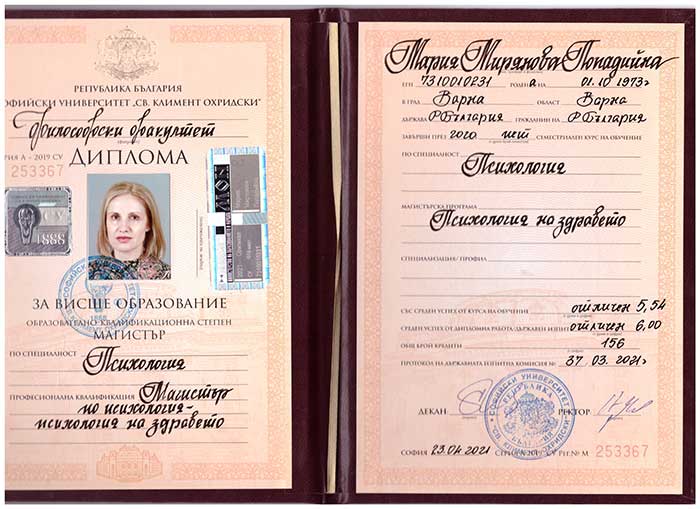 РЕПУБЛИКА БЪЛГАРИЯ
ОФИЙСКИ УНИВЕРСИТЕТ „СВ. КЛИМЕНТ ОХРИДСКИ"
Философски факултет
РИЯ А - 2019 СУ
253367
ДИПЛОМА
1888
ЗА ВИСШЕ ОБРАЗОВАНИЕ
ОБРАЗОВАТЕЛНО-КВАЛИФИКАЦИОННА СТЕПЕН
МАГИСТЪР
ПО СПЕЦИАЛНОСТ Психология
ПРОФЕСИОНАЛНА КВАЛИФИКАЦИЯ Магистър
по психология-
психология на здравето
Мария Мирянова Попадийна
ЕГН 7310010231 РОДЕНА НА 01.10 1973г
В ГРАД Варна ОБЛАСТ Варна
ДЪРЖАВА Р България ГРАЖДАНИН НА Р България
ЗАВЪРШИ ПРЕЗ 2020 шест СЕМЕСТРИАЛЕН КУРС НА ОБУЧЕНИЕ
ПО СПЕЦИАЛНОСТ
Психология
МАГИСТЪРСКА ПРОГРАМА
Психология на здравето
СПЕЦИАЛИЗАЦИЯ/ ПРОФИЛ
СЪС СРЕДЕН УСПЕХ ОТ КУРСА НА ОБУЧЕНИЕ отличен 5,54
СРЕДЕН УСПЕХ ОТ ДИПЛОМНА РАБОТА/ДЪРЖАВЕН ИЗПИТ отличен 6,00
ОБЩ БРОЙ КРЕДИТИ 156
ПРОТОКОЛ НА ДЪРЖАВНАТА ИЗПИТНА КОМИСИЯ № 37 03. 2021г
ДЕКАН РЕКТОР
СОФИЯ 23.04 2021 СУ РЕГ. № М 253367